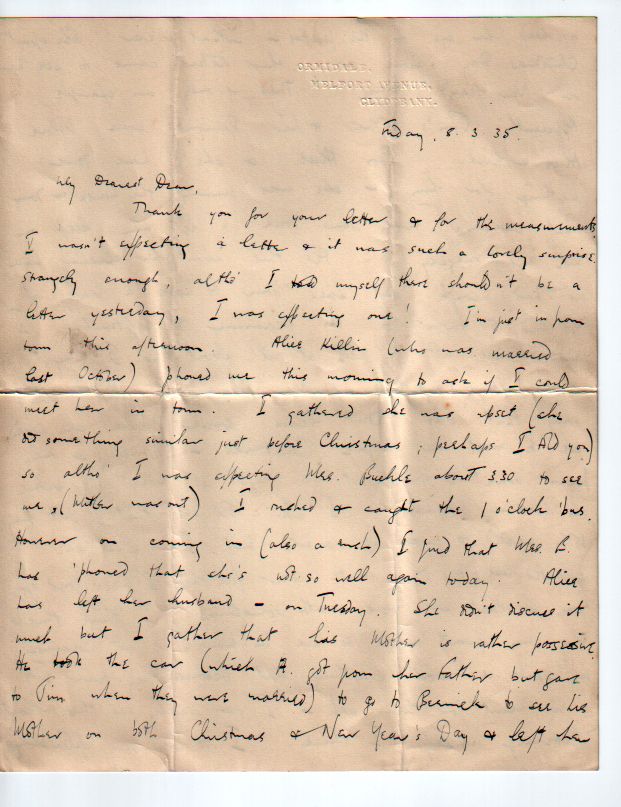 ORMIDALE,
MELFORT AVENUE,
CLYDEBANK.
Friday, 8.3.35.
My Dearest Dear,
Thank you for your letter & for the measurements.
I wasn't expecting a letter & it was such a lovely surprise.
Strangely enough, altho' I told myself there shouldn't be a
letter yesterday, I was expecting one! I'm just in from
town this afternoon. Alice Killin (who was married
last October) phoned me this morning to ask if I could
meet her in town. I gathered she was upset (she
did something similar just before Christmas; perhaps I told you)
so altho' I was expecting Mrs. Buckle about 3.30 to see
me, (Mother was out) I rushed & caught the 1 o'clock 'bus.
However on coming in (also a rush) I find that Mrs. B.
has 'phoned that she's not so well again today. Alice
has left her husband - on Tuesday. She didn't discuss it
much but I gather that his Mother is rather possessive.
He took the car (which A. got from her Father but gave
to Jim when they were married) to go to Berwick to see his
Mother on both Christmas & New Year's Day & left her